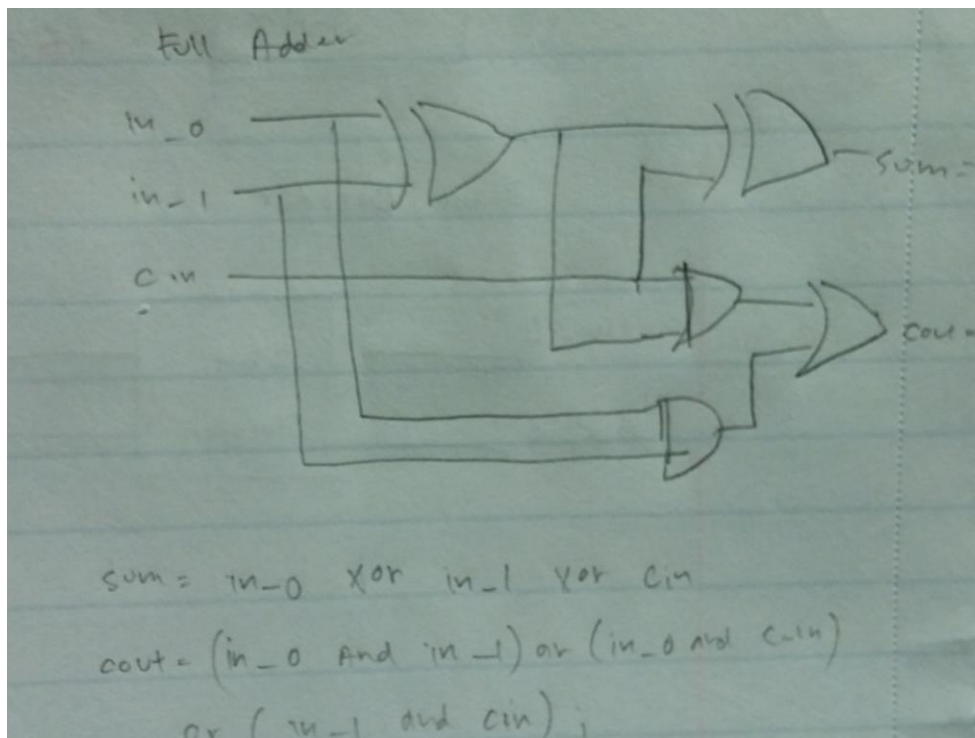 Full Adder
in_0
in_1
sum=
C in
cout=
sum= in_0 xor in_1 xor Cin
cout= (in_0 And in_1) or (in_0 and C_in)
or (in_1 and cin);